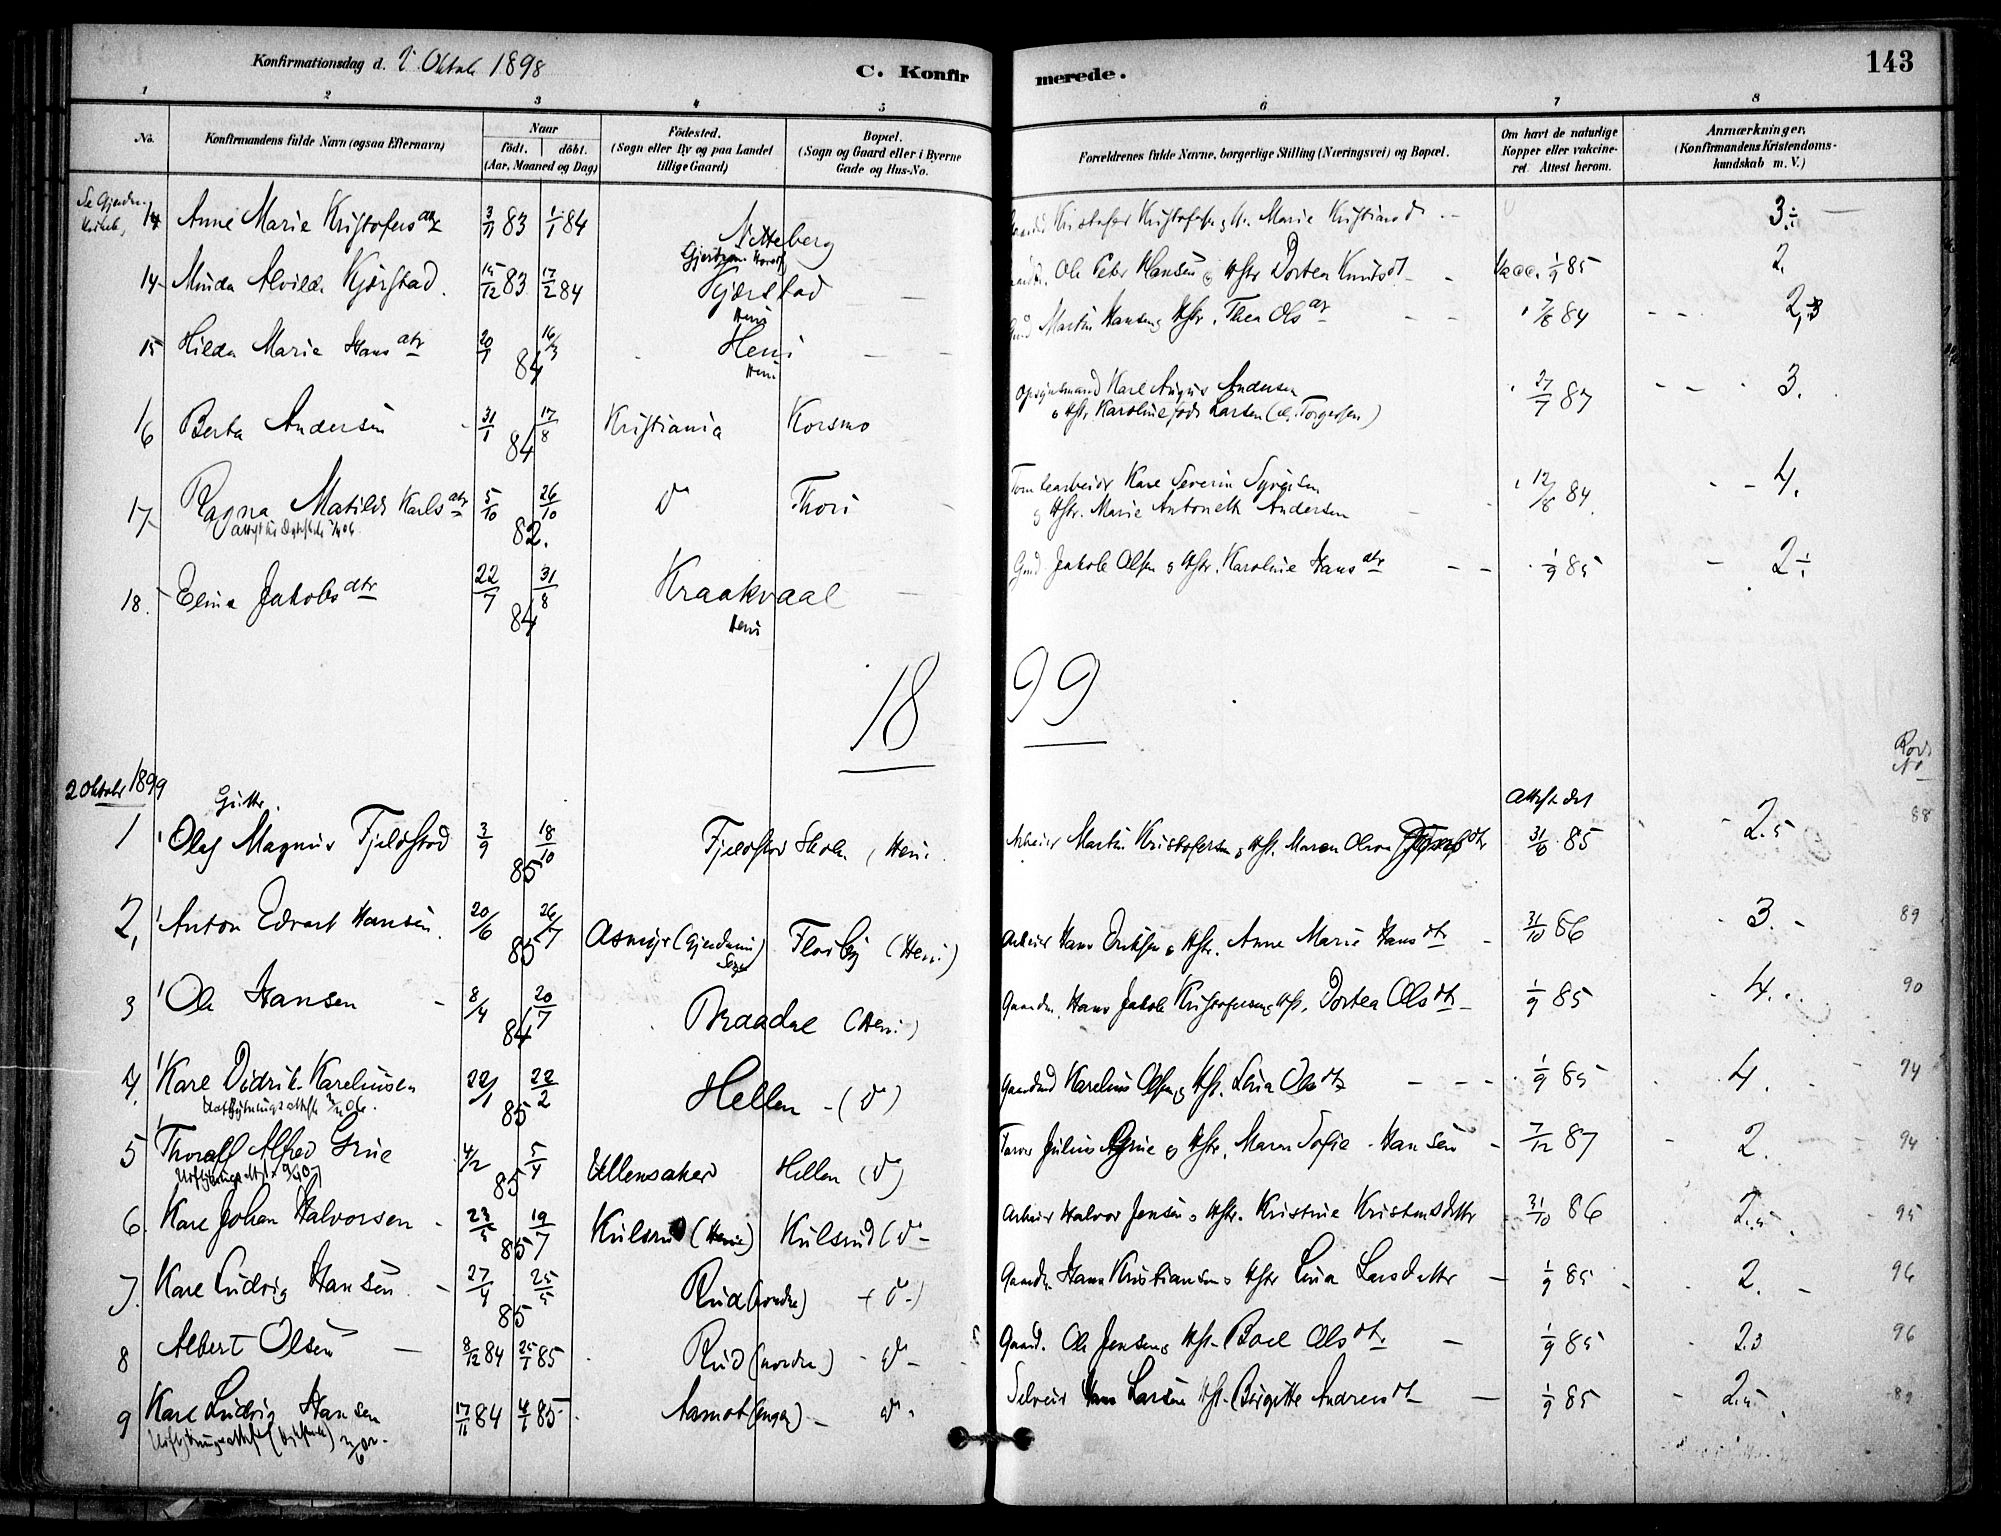 Konfirmationsdag d. 2. Oktob 1898
C. Konfirmerede.
143
1 2 3 4 5 6 7 8
No. Konfirmandens fulde Navn (ogsaa Efternavn) Naar født. døbt. (Aar, Maaned og Dag) Fødested. (Sogn eller By og paa Landet tillige Gaard) Bopæl. (Sogn og Gaard eller i Byerne Gade og Hus-No. Forældrenes fulde Navne, borgerlige Stilling (Næringsvei) og Bopæl. Om havt de naturlige Kopper eller vakcineret. Attest herom. Anmærkninger, (Konfirmandens Kristendomskundskab m. V.)
Anne Marie Kristofersdtr 3/11 83 1/1 84 Netteberg Kristofer Kristofersen Marie Kristiansd 3.÷
14 Minda Alvilda Kjærstad 15/12 83 17/2 84 Kjærstad Ole Peter Hansen og Hstr Dortea Knutsdt Vacc. 1/9 85 2.
Heni
15 Hilda Marie Hansdtr 20/1 16/3 84 Heni Martin Hansen Hstr. Thea Olsdtr 7/8 84 2,3
Heni
16 Berta Andersen 31/1 17/8 84 Kristiania Korsmo Opsynsmand Karl August Andersen 27/7 87 3.
og Hstr. Karoline født Larsen (el. Torgersen)
17 Ragna Matilde Karlsdtr 5/10 26/10 82. do Thori Tomtearbeider Karl Severin Syversen 12/8 84 4.
og Hstr. Marie Antonette Andersen
18. Elina Jakobsdtr 22/7 31/8 84 Kraakvaal Gmd Jakob Olsen og Hstr. Karoline Hansdtr 1/9 85 2÷
Heni
18 99
2 Oktobr 1899
Gutter.
Attest dat
1 Olaf Magnus Fjeldstad 3/9 18/10 85 Fjeldstad Skole (Heni Arbeider Martin Kristofersen og Hst. Maren Olsen 31/8 85 2.5 88
2, Anton Edvart Hansen. 20/6 26/7 85 Asmyr (Gjerdrum) Floiby (Heni) Arbeider Hans Eriksen og Hstr. Anne Marie Hansdtr 31/10 86 3. 89
3 Ole Hansen 8/4 20/7 84 Braadal (Heni) Gaardm. Hans Jakob Kristofersen og Hst. Dortea Olsdtr 1/9 85 4. 90
4. Karl Didrik Karelinsen 22/1 22/2 85 Hellen (do) Gaardmd Karelius Olsen og Hst. Lina Olsdtr 1/9 85 4. 94
5 Thoralf Alfred Grue 4/2 5/4 85 Ullensaker Hellen (do) Julius Grue og Hstr. Maren Sofie Hansen 7/12 87 2. 94
6. Karl Johan Halvorsen 23/5 19/7 85 Kulsrud (Heni) Kulsrud (do Arbeider Halvor Jensen og Hstr. Kristine Kristensdattr 31/10 86 2.5 95
7. Karl Ludvig Hansen 27/4 25/5 85 Rud (nordre) (do) Gaardm. Hans Kristiansen og Hstr Lina Larsdatter 1/9 85 2. 96
8 Albert Olsen 8/12 84 25/1 85 Rud (nordre) do Gaard. Ole Jensen og Hst. Boel Olsdtr. 1/9 85 2.3 96
9 Karl Ludvig Hansen 17/11 84 4/1 85 Aamot (enga) do Selveier Hans Larsen Hst. Birgitte Andreasdt 1/9 85 2.5 89